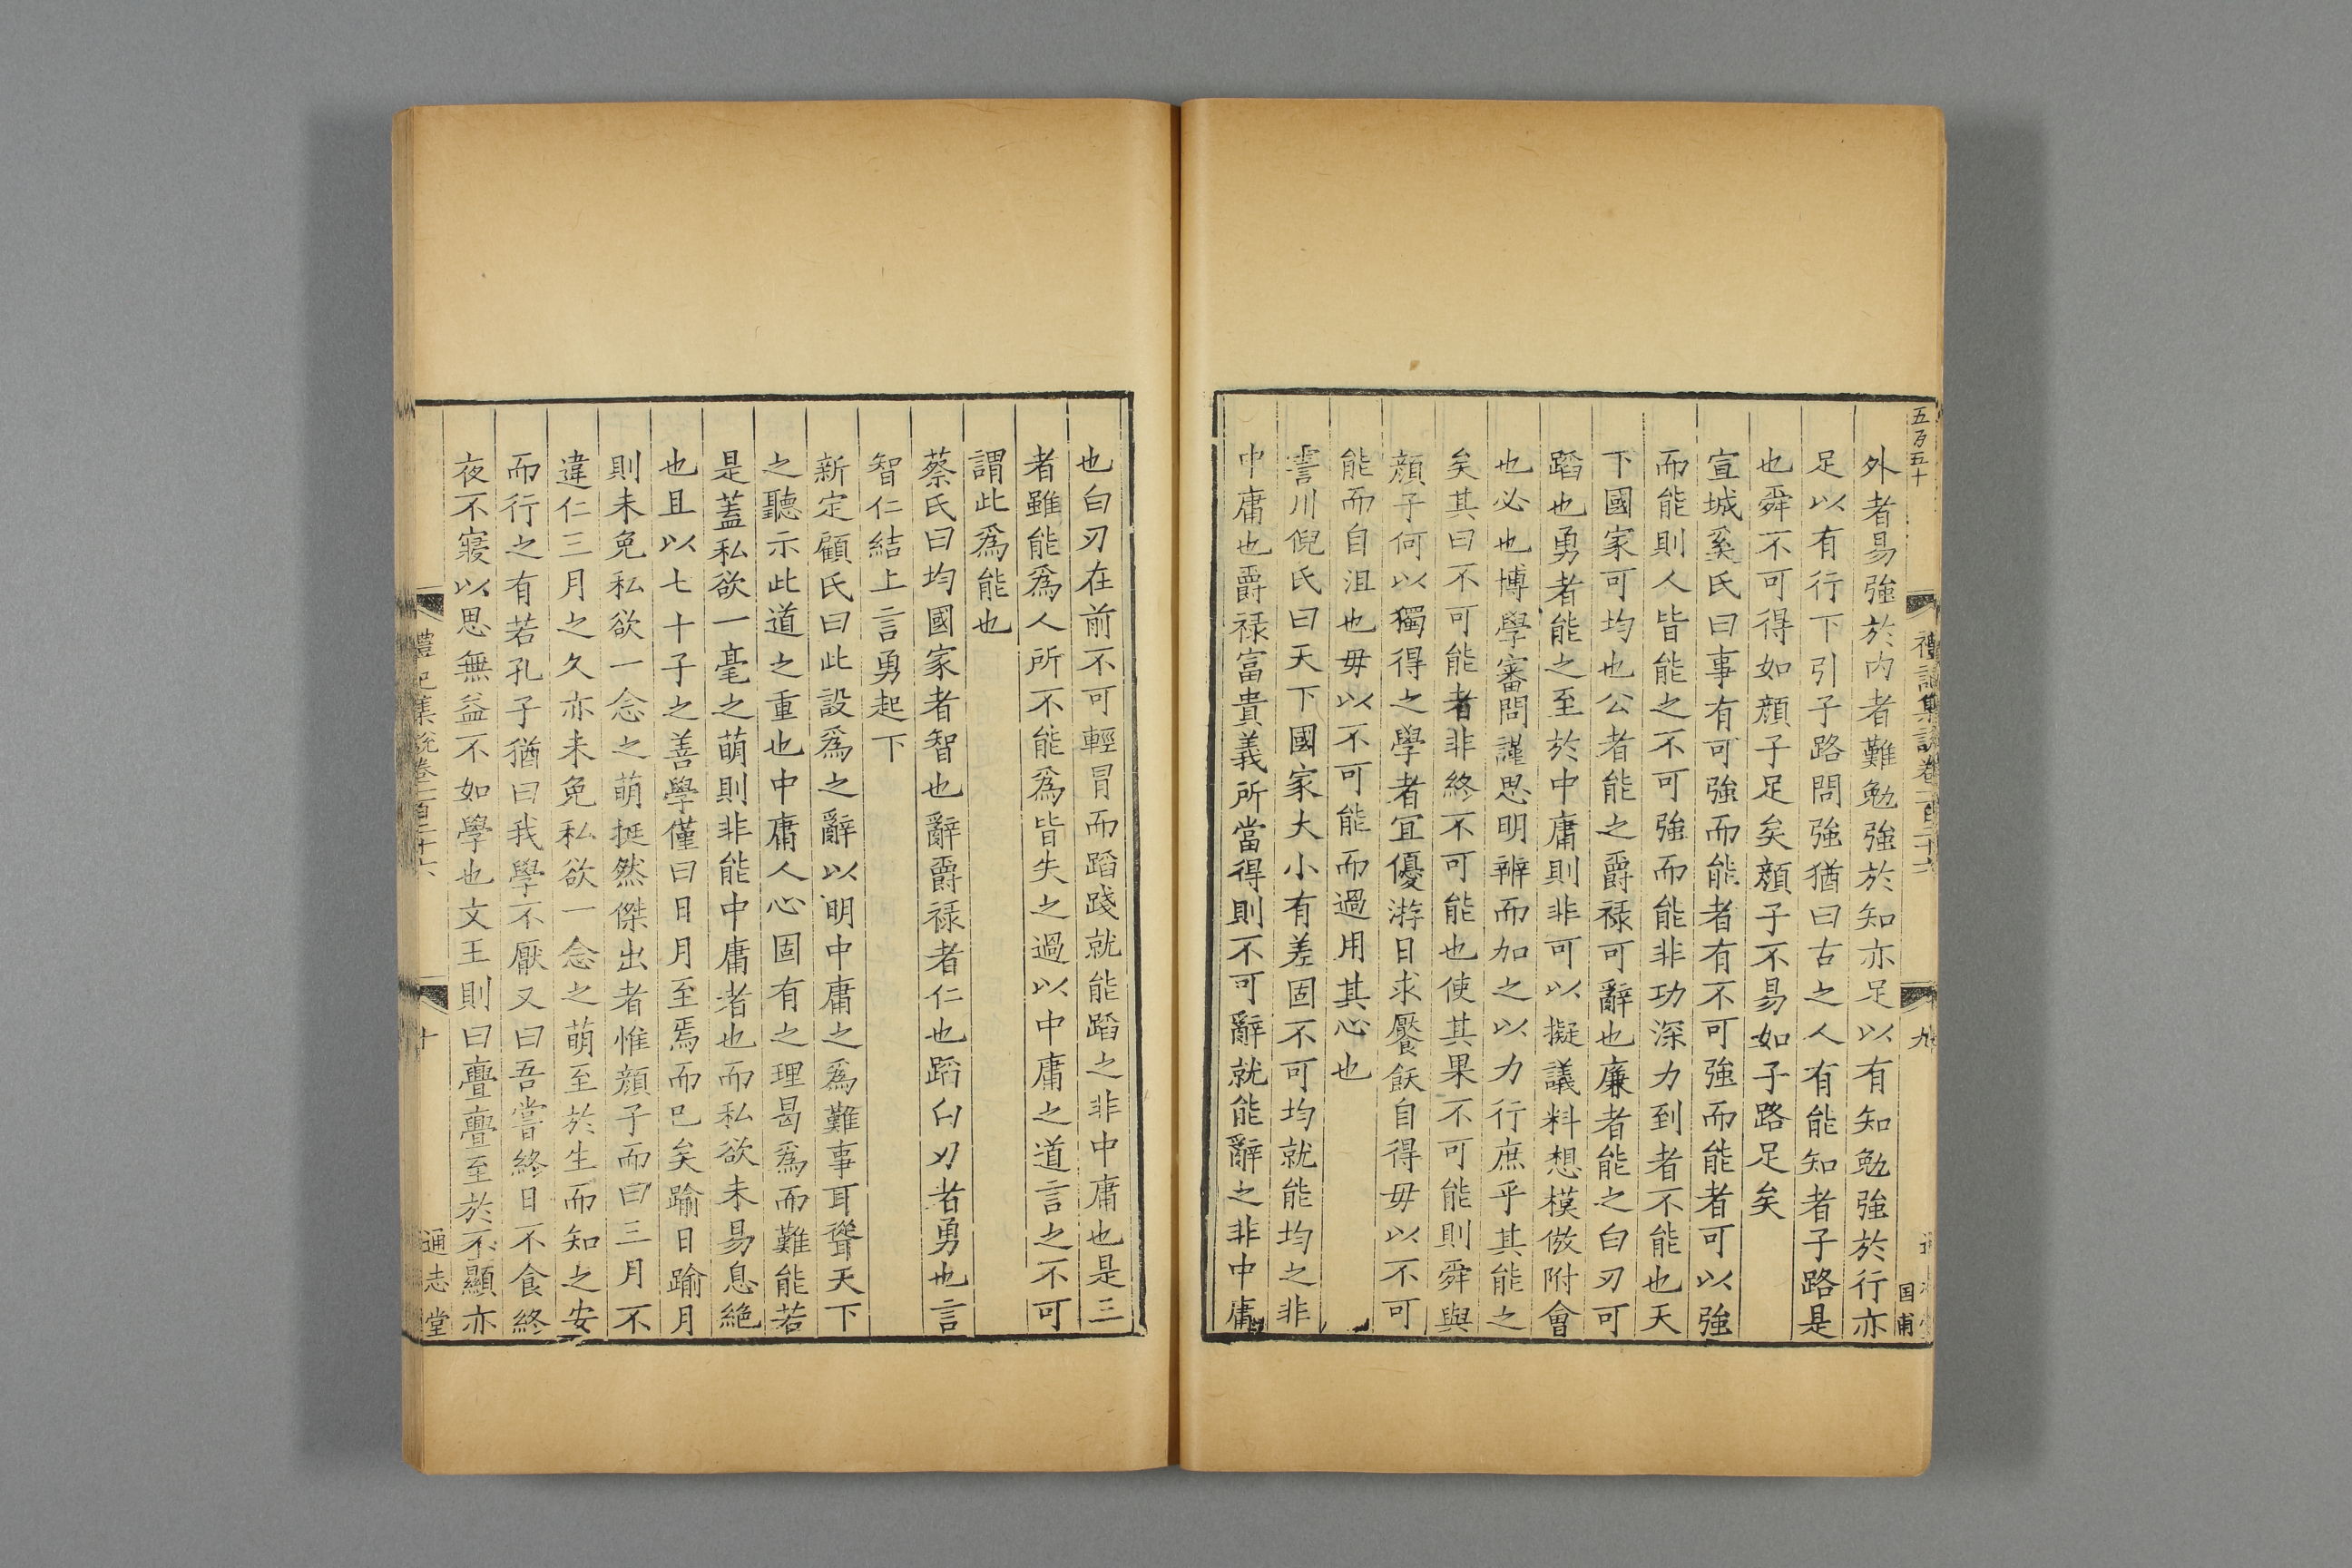 五百五十
禮記集說卷一百二十六
九
国甫
外者易強於内者難勉強於知亦足以有知勉強於行亦
足以有行下引子路問強猶曰古之人有能知者子路是
也舜不可得如顔子足矣顔子不易如子路足矣
宣城奚氏曰事有可強而能者有不可強而能者可以強
而能則人皆能之不可強而能非功深力到者不能也天
下國家可均也公者能之爵禄可辭也廉者能之白刃可
蹈也勇者能之至於中庸則非可以擬議料想模倣附會
也必也博學審問謹思明辨而加之以力行庶乎其能之
矣其曰不可能者非終不可能也使其果不可能則舜與
顔子何以獨得之學者冝優游日求饜飫自得毋以不可
能而自沮也毋以不可能而過用其心也
霅川倪氏曰天下國家大小有差固不可均就能均之非
中庸也爵禄富貴義所當得則不可辭就能辭之非中庸
也白刃在前不可輕冒而蹈踐就能蹈之非中庸也是三
者雖能爲人所不能爲皆失之過以中庸之道言之不可
謂此爲能也
蔡氏曰均國家者智也辭爵禄者仁也蹈白刃者勇也言
智仁結上言勇起下
新定顧氏曰此設爲之辭以明中庸之爲難事耳聳天下
之聽示此道之重也中庸人心固有之理曷爲而難能若
是蓋私欲一毫之萌則非能中庸者也而私欲未易息絶
也且以七十子之善學僅曰日月至焉而已矣踰日踰月
則未免私欲一念之萌挺然傑出者惟顔子而曰三月不
違仁三月之久亦未免私欲一念之萌至於生而知之安
而行之有若孔子猶曰我學不厭又曰吾嘗終日不食終
夜不寢以思無益不如學也文王則曰亹亹至於不顯亦
禮記集說卷一百二十六
十
通志堂